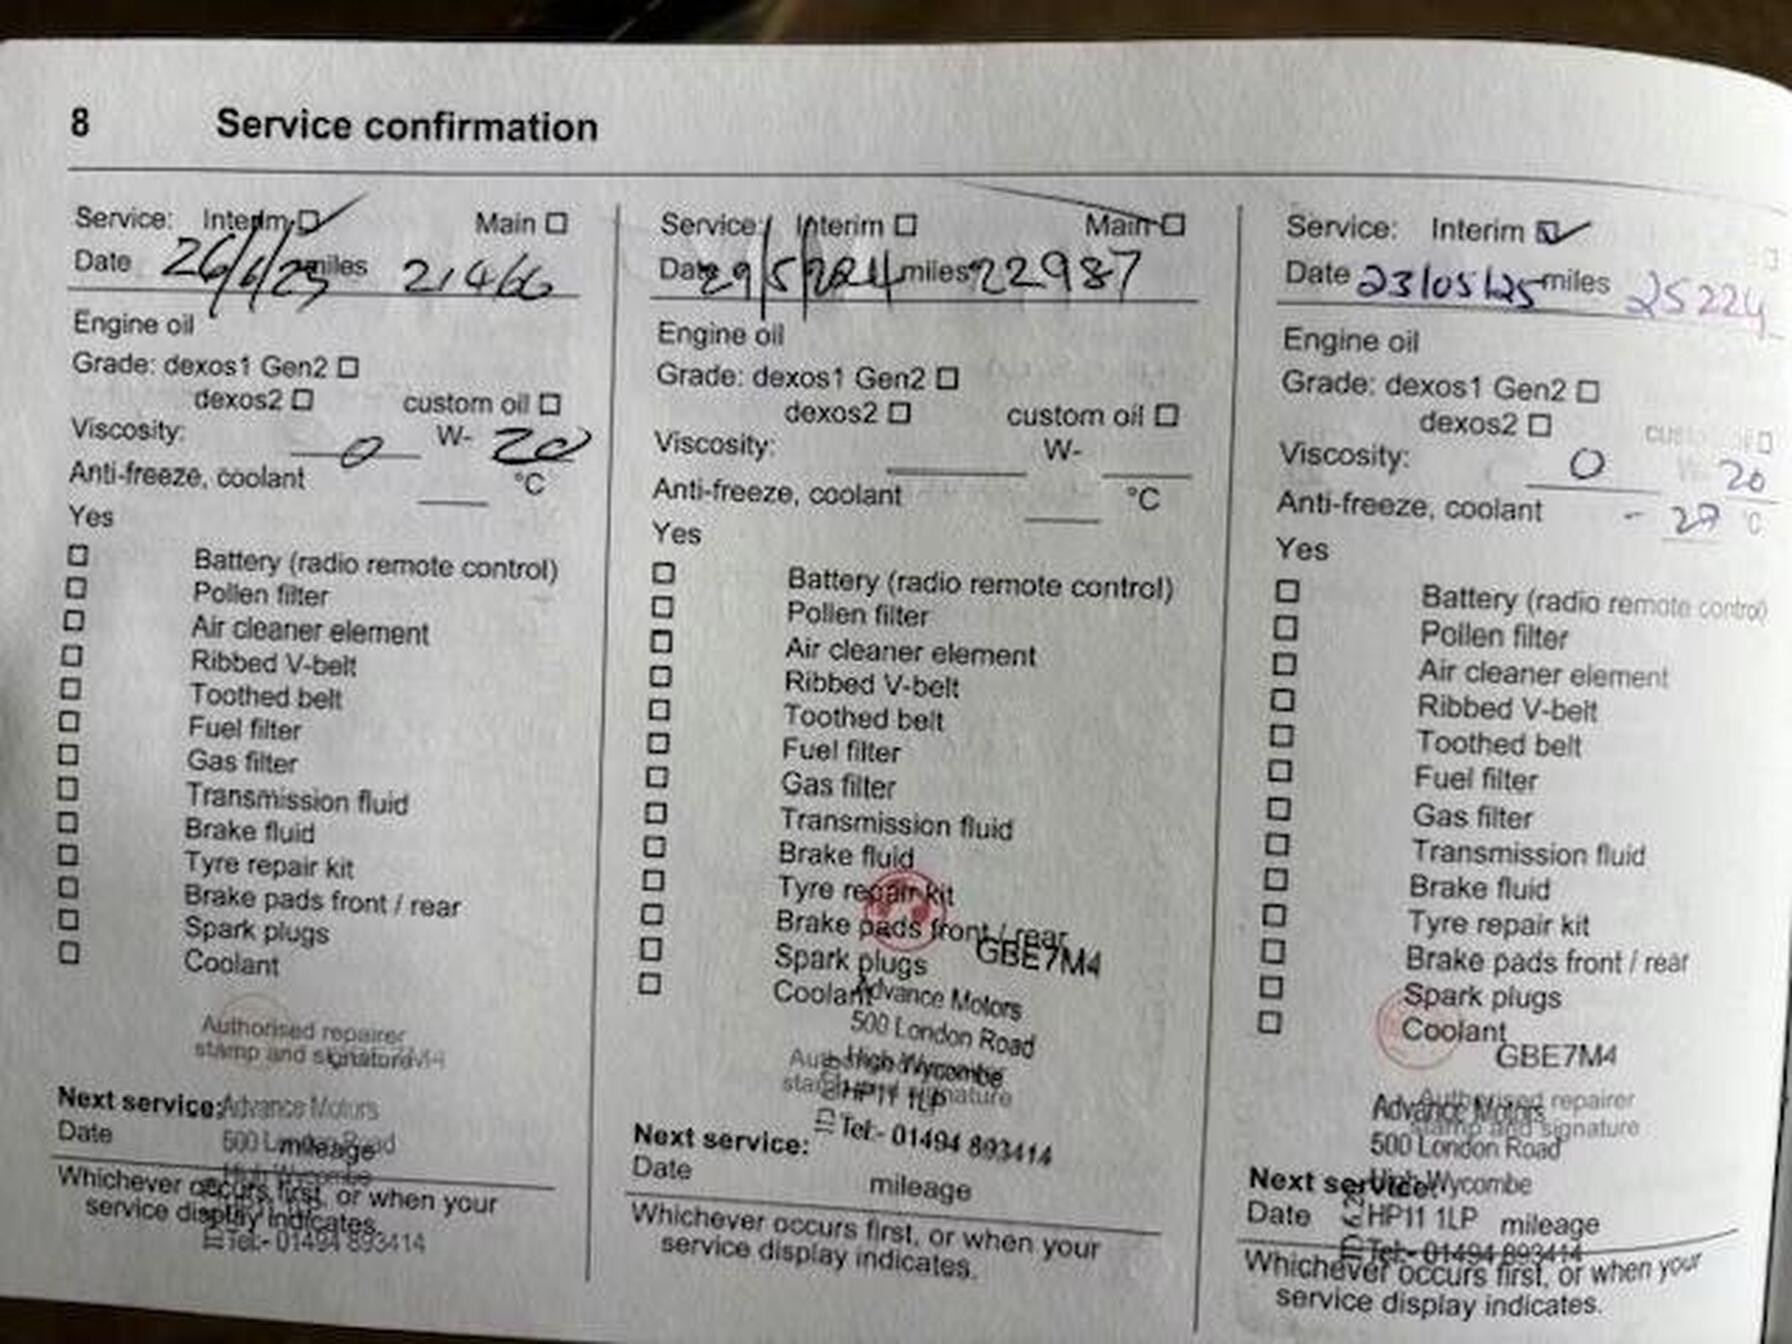 8 Service confirmation
Service: Interim ☐ Main ☐
Date 26/6/23 miles 21466
Engine oil
Grade: dexos1 Gen2 ☐
dexos2 ☐ custom oil ☐
Viscosity: 0 W- 20
Anti-freeze, coolant °C
Yes
☐ Battery (radio remote control)
☐ Pollen filter
☐ Air cleaner element
☐ Ribbed V-belt
☐ Toothed belt
☐ Fuel filter
☐ Gas filter
☐ Transmission fluid
☐ Brake fluid
☐ Tyre repair kit
☐ Brake pads front / rear
☐ Spark plugs
☐ Coolant
Authorised repairer
stamp and signature
Next service: Advance Motors
Date mileage
500 London Road
High Wycombe
Whichever occurs first, or when your
service display indicates.
Tel:- 01494 893414
Service: Interim ☐ Main ☐
Date 29/5/2024 miles 22987
Engine oil
Grade: dexos1 Gen2 ☐
dexos2 ☐ custom oil ☐
Viscosity: W-
Anti-freeze, coolant °C
Yes
☐ Battery (radio remote control)
☐ Pollen filter
☐ Air cleaner element
☐ Ribbed V-belt
☐ Toothed belt
☐ Fuel filter
☐ Gas filter
☐ Transmission fluid
☐ Brake fluid
☐ Tyre repair kit
☐ Brake pads front / rear
GBE7M4
☐ Spark plugs
☐ Coolant
Advance Motors
500 London Road
High Wycombe
HP11 1LP
Authorised repairer
stamp and signature
Tel:- 01494 893414
Next service:
Date mileage
Whichever occurs first, or when your
service display indicates.
Service: Interim ☑
Date 23/05/25 miles 25224
Engine oil
Grade: dexos1 Gen2 ☐
dexos2 ☐ custom oil ☐
Viscosity: 0 W- 20
Anti-freeze, coolant - 27 °C
Yes
☐ Battery (radio remote control)
☐ Pollen filter
☐ Air cleaner element
☐ Ribbed V-belt
☐ Toothed belt
☐ Fuel filter
☐ Gas filter
☐ Transmission fluid
☐ Brake fluid
☐ Tyre repair kit
☐ Brake pads front / rear
☐ Spark plugs
☐ Coolant
GBE7M4
Authorised repairer
stamp and signature
Advance Motors
500 London Road
High Wycombe
HP11 1LP
Tel:- 01494 893414
Next service:
Date mileage
Whichever occurs first, or when your
service display indicates.